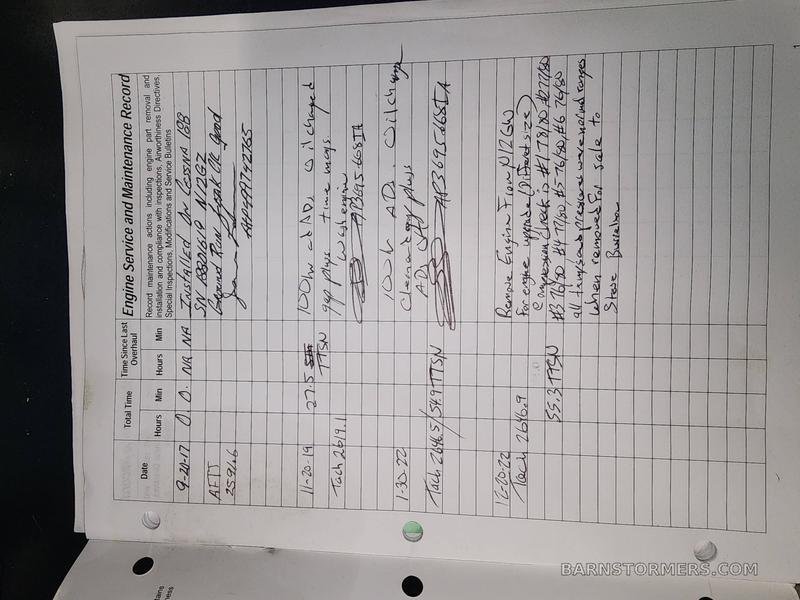 Engine Service and Maintenance Record
Record maintenance actions including engine part removal and
installation and compliance with inspections, Airworthiness Directives,
Special Inspections, Modifications and Service Bulletins
Date
Total Time
Hours Min
Time Since Last
Overhaul
Hours Min
9-20-17 0. 0. NA NA INSTALLED ON CESSNA 188
SN 18801619 N12GZ
AFTT
2591.6
Ground Run Leak CK good
11-20-19 27.5 100hr AD, Oil changed
TTSN gap plugs time mags
Tach 2619.1 Wash engine
AP3695668IA
1-30-22 100h AD. Oil change
Clean gap plugs
Tach 2646.5/54.9 TTSN AD
AP3695668IA
12-20-22 Remove Engine From N12GW
Tach 2646.9 for engine upgrade (Different size)
compression check is #1 78/80 #2 77/80
55.3 TTSN #3 76/80 #4 77/80, #5-76/80, #6 76/80
all temps and pressure were normal ranges
when removed for sale to
Steve
BARNSTORMERS.COM